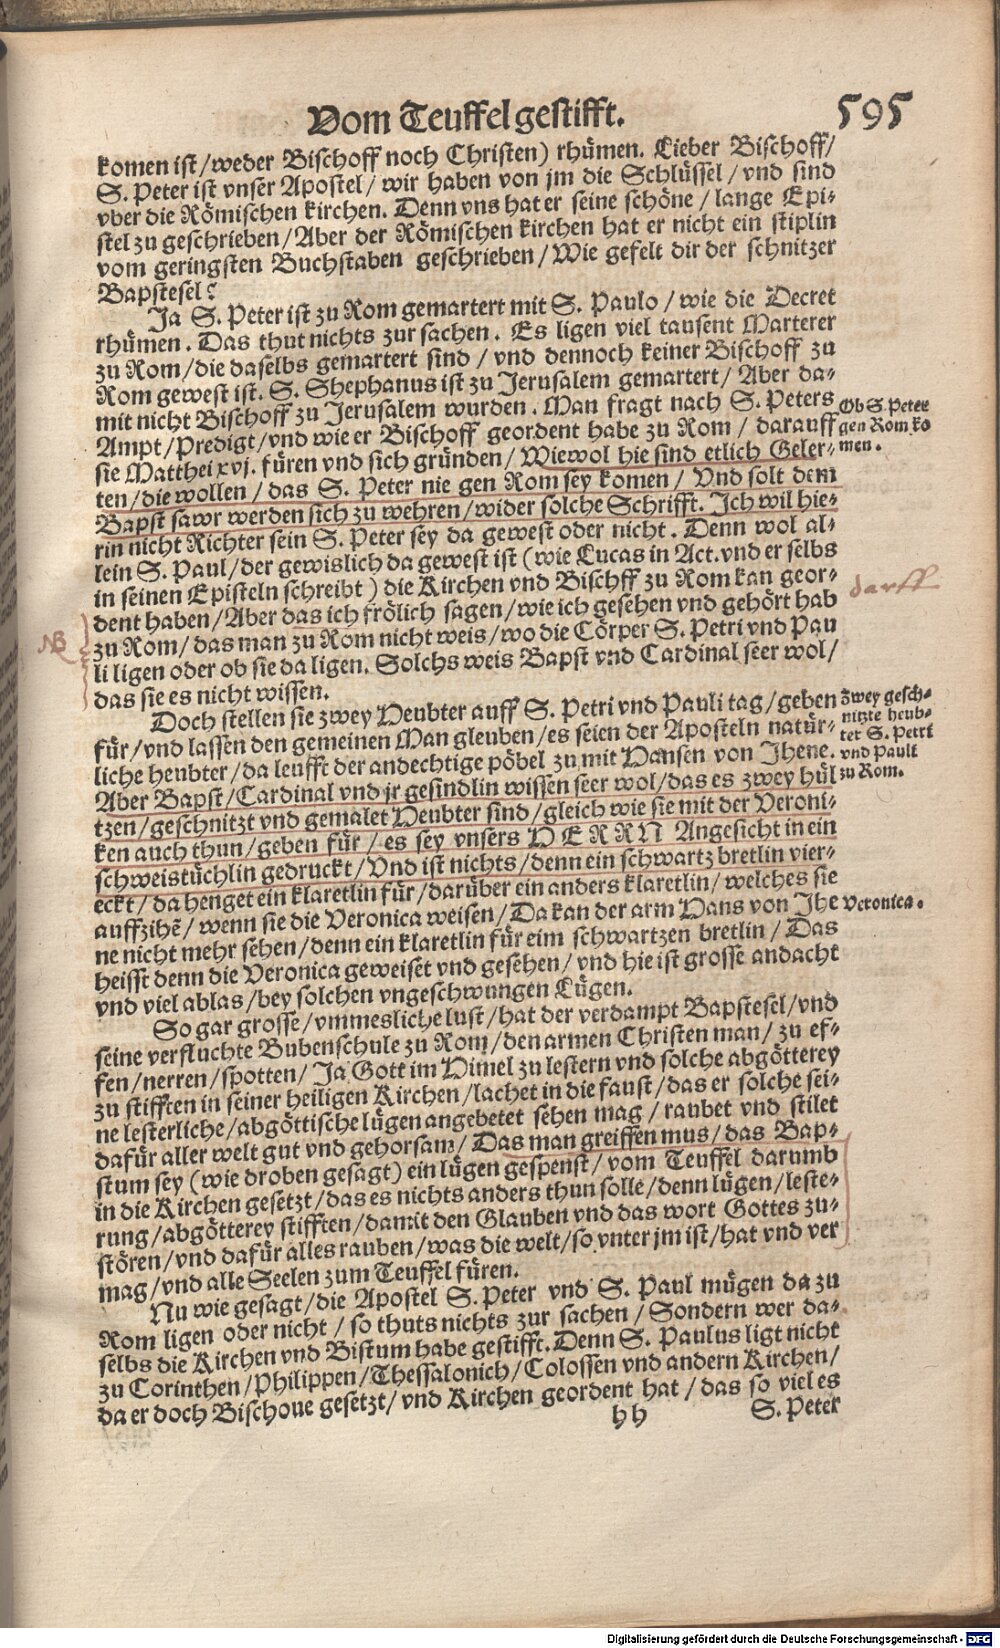 Vom Teuffel gestifft. 595
komen ist / weder Bischoff noch Christen) rhümen. Lieber Bischoff /
S. Peter ist vnser Apostel / wir haben von jm die Schlüssel / vnd sind
vber die Römischen kirchen. Denn vns hat er seine schöne / lange Epi-
stel zu geschrieben / Aber der Römischen kirchen hat er nicht ein stiplin
vom geringsten Buchstaben geschrieben / Wie gefelt dir der schnitzer
Bapstesel?
Ja S. Peter ist zu Rom gemartert mit S. Paulo / wie die Decret
rhümen. Das thut nichts zur sachen. Es ligen viel tausent Marterer
zu Rom / die daselbs gemartert sind / vnd dennoch keiner Bischoff zu
Rom gewest ist. S. Shephanus ist zu Jerusalem gemartert / Aber da-
mit nicht Bischoff zu Jerusalem wurden. Man fragt nach S. Peters
Ampt / Predigt / vnd wie er Bischoff geordent habe zu Rom / darauff
sie Matthei xvj. füren vnd sich gründen / Wiewol hie sind etlich Geler-
ten / die wollen / das S. Peter nie gen Rom sey komen / Vnd solt dem
Bapst sawr werden sich zu wehren / wider solche Schrifft. Ich wil hie-
rin nicht Richter sein S. Peter sey da gewest oder nicht. Denn wol al-
lein S. Paul / der gewislich da gewest ist (wie Lucas in Act. vnd er selbs
in seinen Episteln schreibt) die Kirchen vnd Bischff zu Rom kan geor-
dent haben / Aber das ich frölich sagen / wie ich gesehen vnd gehört hab
zu Rom / das man zu Rom nicht weis / wo die Cörper S. Petri vnd Pau
li ligen oder ob sie da ligen. Solchs weis Bapst vnd Cardinal seer wol /
das sie es nicht wissen.
Ob S. Peter
gen Rom ko
men.
darff
NB
Doch stellen sie zwey Heubter auff S. Petri vnd Pauli tag / geben
für / vnd lassen den gemeinen Man gleuben / es seien der Aposteln natür-
liche heubter / da leufft der andechtige pöbel zu mit Hansen von Jhene.
Aber Bapst / Cardinal vnd jr gesindlin wissen seer wol / das es zwey hül
tzen / geschnitzt vnd gemalet Heubter sind / gleich wie sie mit der Veroni-
ken auch thun / geben für / es sey vnsers HERRN Angesicht in ein
schweistüchlin gedruckt / Vnd ist nichts / denn ein schwartz bretlin vier-
eckt / da henget ein klaretlin für / darüber ein anders klaretlin / welches sie
auffzihẽ / wenn sie die Veronica weisen / Da kan der arm Hans von Jhe
ne nicht mehr sehen / denn ein klaretlin für eim schwartzen bretlin / Das
heisst denn die Veronica geweiset vnd gesehen / vnd hie ist grosse andacht
vnd viel ablas / bey solchen vngeschwungen Lügen.
Zwey gesch-
nitzte heub-
ter S. Petri
vnd Pauli
zu Rom.
Veronica.
So gar grosse / vmmesliche lust / hat der verdampt Bapstesel / vnd
seine verfluchte Bubenschule zu Rom / den armen Christen man / zu ef-
fen / nerren / spotten / Ja Gott im Himel zu lestern vnd solche abgötterey
zu stifften in seiner heiligen Kirchen / lachet in die faust / das er solche sei-
ne lesterliche / abgöttische lügen angebetet sehen mag / raubet vnd stilet
dafür aller welt gut vnd gehorsam / Das man greiffen mus / das Bap-
stum sey (wie droben gesagt) ein lügen gespenst / vom Teuffel darumb
in die Kirchen gesetzt / das es nichts anders thun solle / denn lügen / leste-
rung / abgötterey stifften / damit den Glauben vnd das wort Gottes zu-
stören / vnd dafür alles rauben / was die welt / so vnter jm ist / hat vnd ver
mag / vnd alle Seelen zum Teuffel füren.
Nu wie gesagt / die Apostel S. Peter vnd S. Paul mügen da zu
Rom ligen oder nicht / so thuts nichts zur sachen / Sondern wer da-
selbs die Kirchen vnd Bistum habe gestifft. Denn S. Paulus ligt nicht
zu Corinthen / Philippen / Thessalonich / Colossen vnd andern Kirchen /
da er doch Bischoue gesetzt / vnd Kirchen geordent hat / das so viel es
hh S. Peter
Digitalisierung gefördert durch die Deutsche Forschungsgemeinschaft - DFG